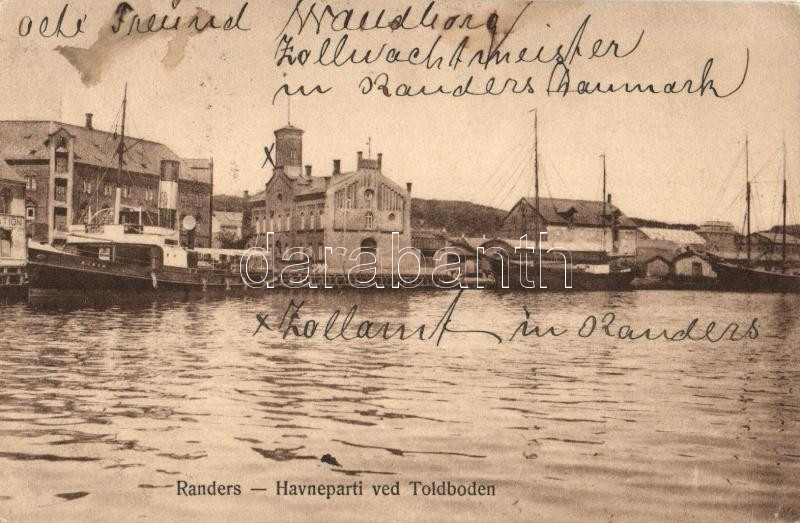 Freund Wandborg
Zollwachtmeister
in Randers Danmark
TION
x
darabanth
x Zollamt in Randers
Randers — Havneparti ved Toldboden